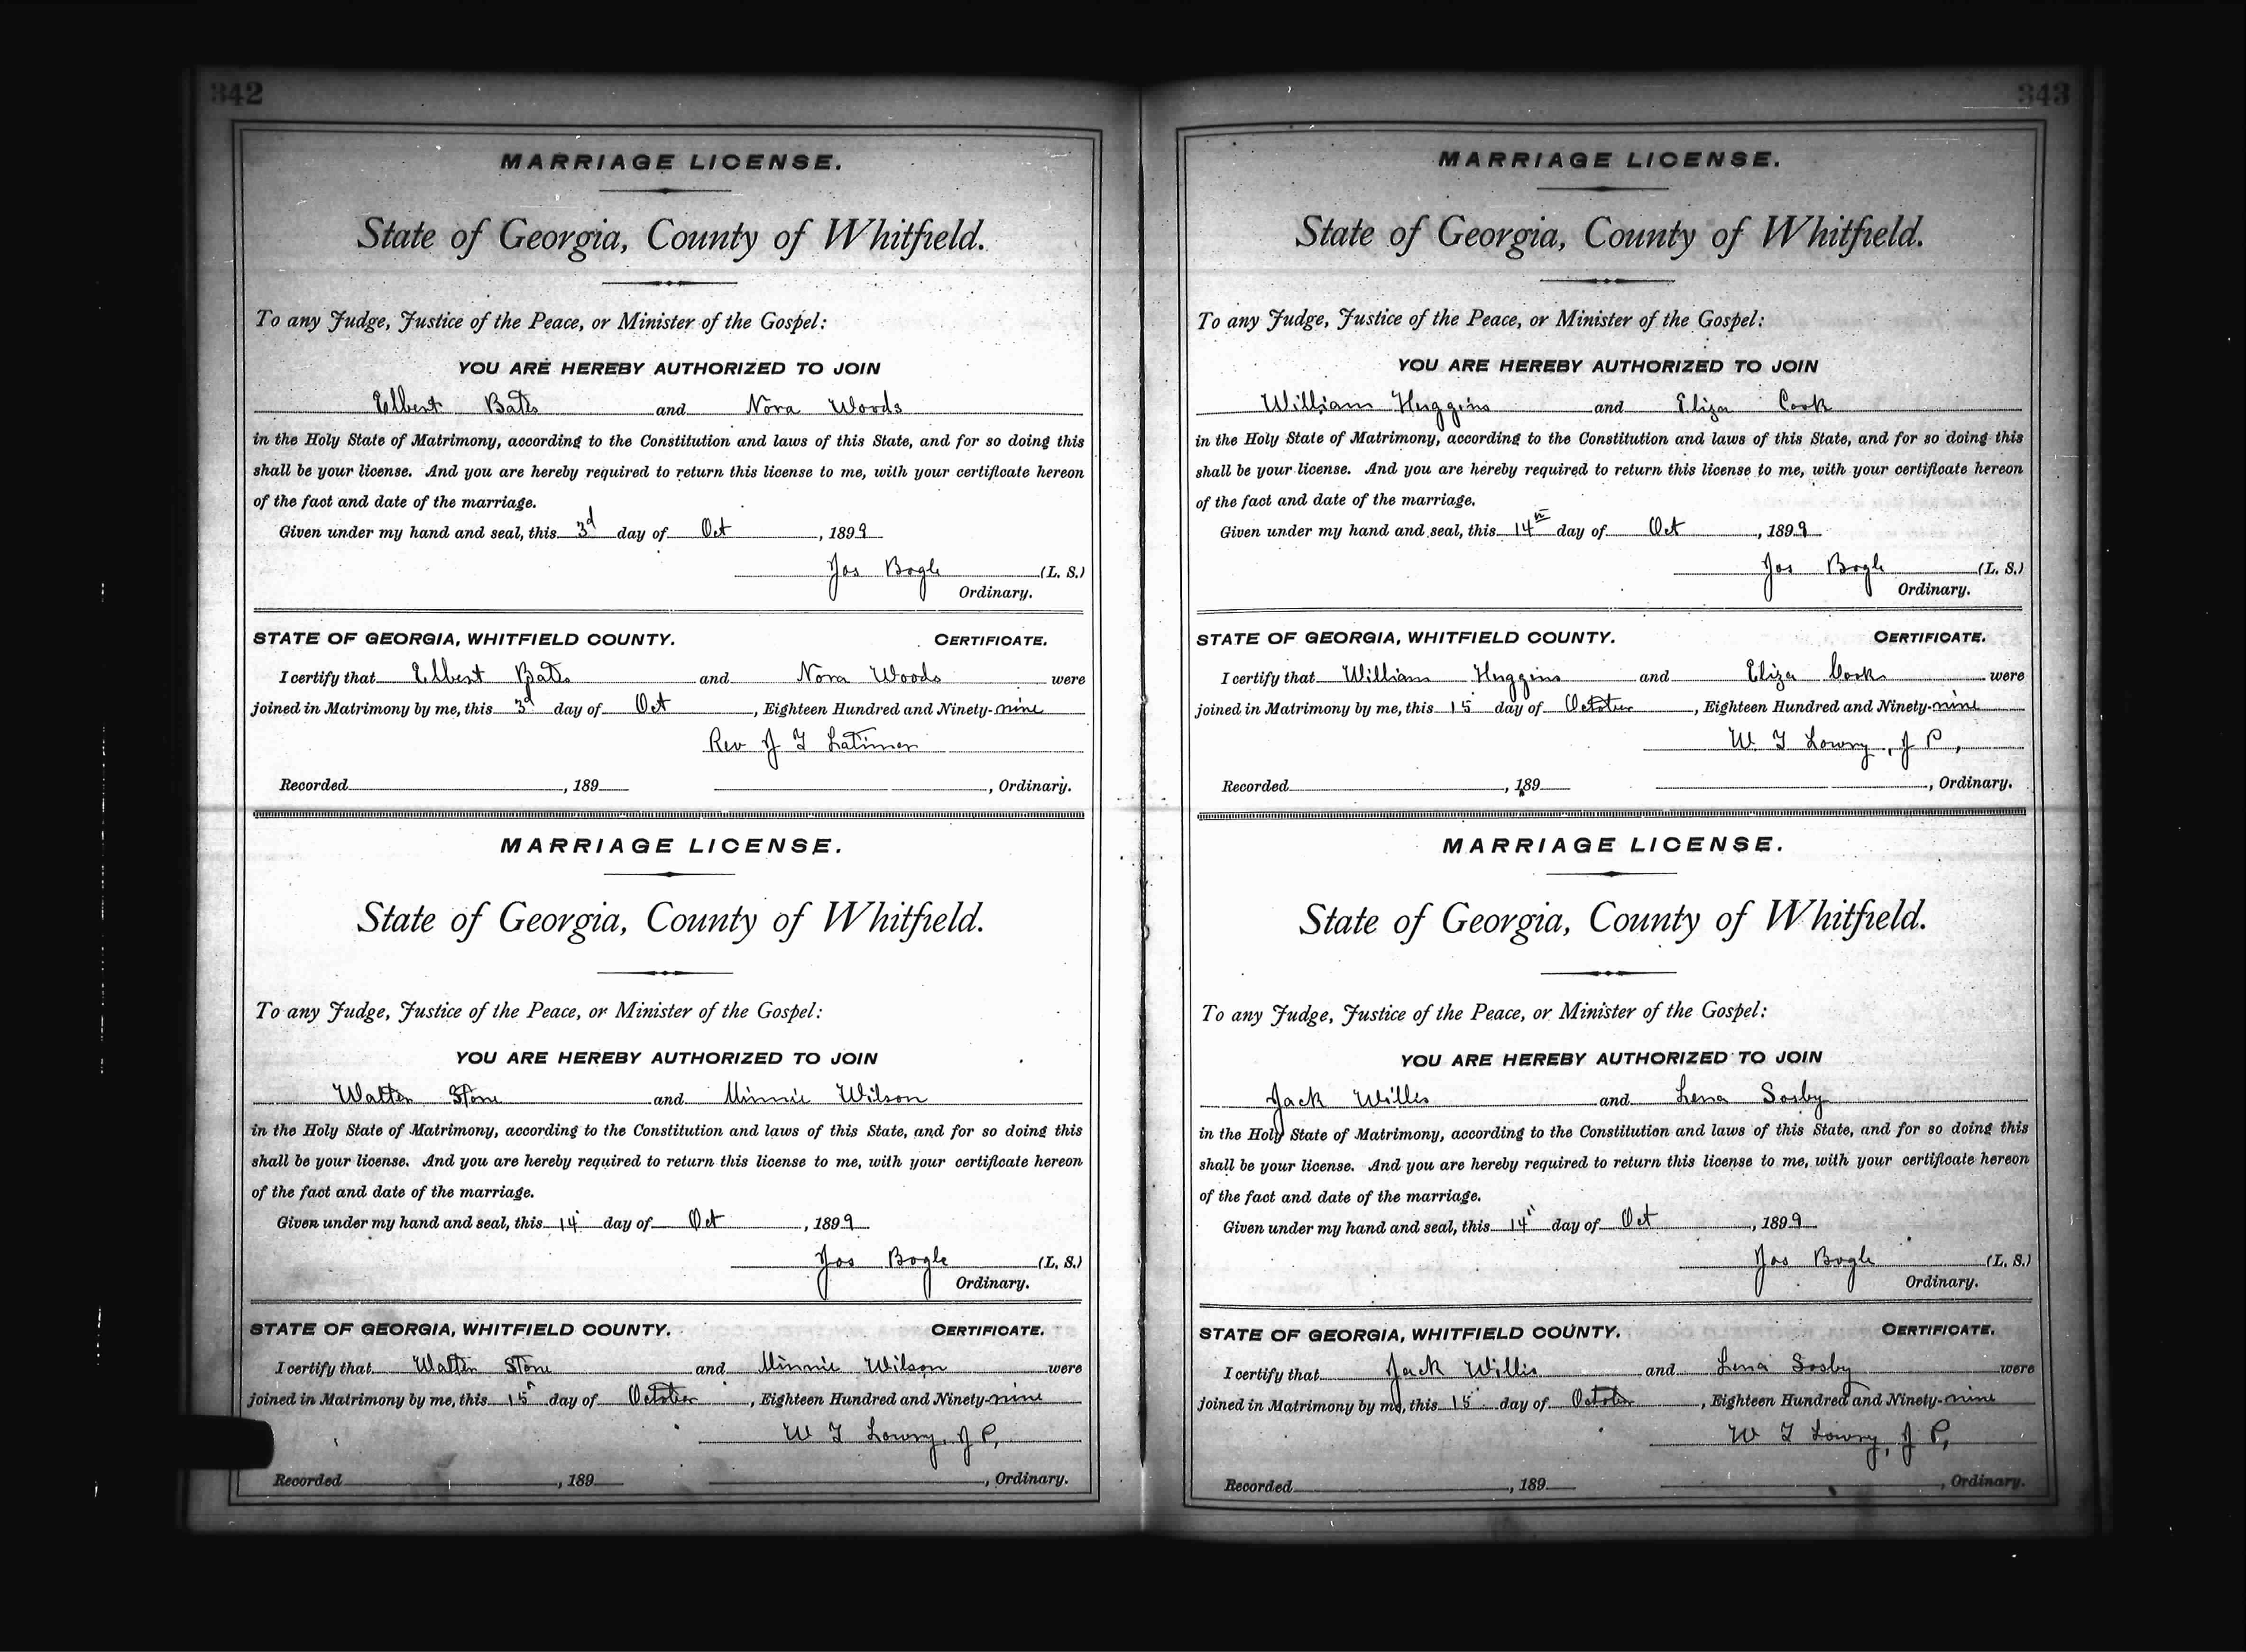 342
MARRIAGE LICENSE.
State of Georgia, County of Whitfield.
To any Judge, Justice of the Peace, or Minister of the Gospel:
YOU ARE HEREBY AUTHORIZED TO JOIN
Elbert Bates and Nora Woods
in the Holy State of Matrimony, according to the Constitution and laws of this State, and for so doing this
shall be your license. And you are hereby required to return this license to me, with your certificate hereon
of the fact and date of the marriage.
Given under my hand and seal, this 3d day of Oct, 1899
Jos Bogle (L. S.)
Ordinary.
STATE OF GEORGIA, WHITFIELD COUNTY. CERTIFICATE.
I certify that Elbert Bates and Nora Woods were
joined in Matrimony by me, this 3d day of Oct, Eighteen Hundred and Ninety-nine
Rev J T Latimer
Recorded , 189 , Ordinary.
MARRIAGE LICENSE.
State of Georgia, County of Whitfield.
To any Judge, Justice of the Peace, or Minister of the Gospel:
YOU ARE HEREBY AUTHORIZED TO JOIN
Walter Stone and Minnie Wilson
in the Holy State of Matrimony, according to the Constitution and laws of this State, and for so doing this
shall be your license. And you are hereby required to return this license to me, with your certificate hereon
of the fact and date of the marriage.
Given under my hand and seal, this 14 day of Oct, 1899
Jos Bogle (L. S.)
Ordinary.
STATE OF GEORGIA, WHITFIELD COUNTY. CERTIFICATE.
I certify that Walter Stone and Minnie Wilson were
joined in Matrimony by me, this 15 day of October, Eighteen Hundred and Ninety-nine
W T Lowry, J P,
Recorded , 189 , Ordinary.
343
MARRIAGE LICENSE.
State of Georgia, County of Whitfield.
To any Judge, Justice of the Peace, or Minister of the Gospel:
YOU ARE HEREBY AUTHORIZED TO JOIN
William Huggins and Eliza Cook
in the Holy State of Matrimony, according to the Constitution and laws of this State, and for so doing this
shall be your license. And you are hereby required to return this license to me, with your certificate hereon
of the fact and date of the marriage.
Given under my hand and seal, this 14th day of Oct, 1899
Jos Bogle (L. S.)
Ordinary.
STATE OF GEORGIA, WHITFIELD COUNTY. CERTIFICATE.
I certify that William Huggins and Eliza Cook were
joined in Matrimony by me, this 15 day of October, Eighteen Hundred and Ninety-nine
W T Lowry, J P,
Recorded , 189 , Ordinary.
MARRIAGE LICENSE.
State of Georgia, County of Whitfield.
To any Judge, Justice of the Peace, or Minister of the Gospel:
YOU ARE HEREBY AUTHORIZED TO JOIN
Jack Willis and Lena Sosby
in the Holy State of Matrimony, according to the Constitution and laws of this State, and for so doing this
shall be your license. And you are hereby required to return this license to me, with your certificate hereon
of the fact and date of the marriage.
Given under my hand and seal, this 14 day of Oct, 1899
Jos Bogle (L. S.)
Ordinary.
STATE OF GEORGIA, WHITFIELD COUNTY. CERTIFICATE.
I certify that Jack Willis and Lena Sosby were
joined in Matrimony by me, this 15 day of October, Eighteen Hundred and Ninety-nine
W T Lowry, J P,
Recorded , 189 , Ordinary.